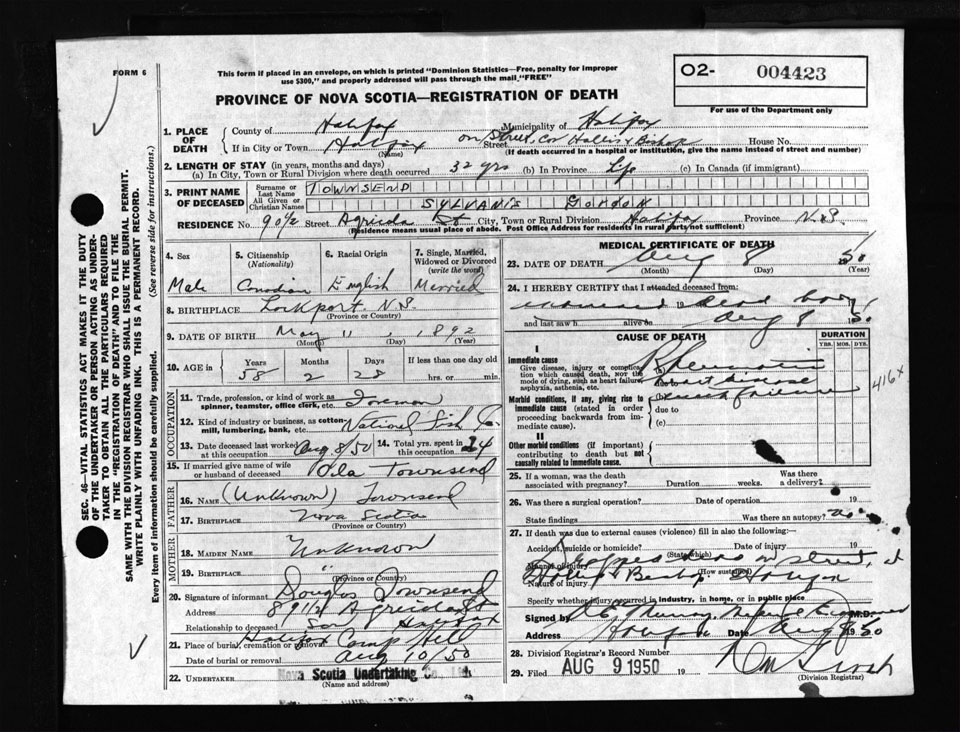 FORM 6
This form if placed in an envelope, on which is printed "Dominion Statistics—Free, penalty for improper
use $300," and properly addressed will pass through the mail "FREE"
PROVINCE OF NOVA SCOTIA—REGISTRATION OF DEATH
O2- 004423
For use of the Department only
SEC. 46—VITAL STATISTICS ACT MAKES IT THE DUTY
OF THE UNDERTAKER OR PERSON ACTING AS UNDER-
TAKER TO OBTAIN ALL THE PARTICULARS REQUIRED
IN THE "REGISTRATION OF DEATH" AND TO FILE THE
SAME WITH THE DIVISION REGISTRAR WHO SHALL ISSUE THE BURIAL PERMIT.
WRITE PLAINLY WITH UNFADING INK. THIS IS A PERMANENT RECORD.
Every item of information should be carefully supplied. (See reverse side for instructions.)
1. PLACE OF DEATH
County of Halifax Municipality of Halifax
If in City or Town Halifax Street on Street Cor Hollis & Bishop House No.
(Name) (If death occurred in a hospital or institution, give the name instead of street and number)
2. LENGTH OF STAY (in years, months and days)
(a) In City, Town or Rural Division where death occurred 32 yrs (b) In Province Life (c) In Canada (if immigrant)
3. PRINT NAME OF DECEASED
Surname or Last Name TOWNSEND
All Given or Christian Names SYLVANIS GORDON
RESIDENCE No. 90½ Street Agricola St City, Town or Rural Division Halifax Province N.S.
(Residence means usual place of abode. Post Office Address for residents in rural parts not sufficient)
4. Sex 5. Citizenship (Nationality) 6. Racial Origin 7. Single, Married, Widowed or Divorced (write the word)
Male Canadian English Married
8. BIRTHPLACE Lockport N.S.
(Province or Country)
9. DATE OF BIRTH May 11, 1892
(Month) (Day) (Year)
10. AGE in Years Months Days If less than one day old
58 2 28 hrs. or min.
OCCUPATION
11. Trade, profession, or kind of work as spinner, teamster, office clerk, etc. Foreman
12. Kind of industry or business, as cotton mill, lumbering, bank, etc. National Fish Co.
13. Date deceased last worked at this occupation Aug 8/50 14. Total yrs. spent in this occupation 24
15. If married give name of wife or husband of deceased Townsend
FATHER
16. NAME (Unknown) Townsend
17. BIRTHPLACE Nova Scotia
(Province or Country)
MOTHER
18. MAIDEN NAME Unknown
19. BIRTHPLACE "
(Province or Country)
20. Signature of informant Douglas Townsend
Address Agricola St
Relationship to deceased Son Halifax
21. Place of burial, cremation or removal Halifax Camp Hill
Date of burial or removal Aug 10/50
22. UNDERTAKER Nova Scotia Undertaking Co.
(Name and address)
MEDICAL CERTIFICATE OF DEATH
23. DATE OF DEATH Aug 8 50
(Month) (Day) (Year)
24. I HEREBY CERTIFY that I attended deceased from:
examined 19 dead body
and last saw h alive on Aug 8 1950
CAUSE OF DEATH DURATION
YRS. MOS. DYS.
I
Immediate cause
Give disease, injury or complica-
tion which caused death, not the
mode of dying, such as heart failure,
asphyxia, asthenia, etc.
(a) Rheumatic
heart disease
416x
Morbid conditions, if any, giving rise to
immediate cause (stated in order
proceeding backwards from im-
mediate cause).
due to
(c)
II
Other morbid conditions (if important)
contributing to death but not
causally related to immediate cause.
25. If a woman, was the death associated with pregnancy? Duration weeks. Was there a delivery?
26. Was there a surgical operation? Date of operation 19
State findings Was there an autopsy? no
27. If death was due to external causes (violence) fill in also the following:
Accident, suicide or homicide? Date of injury 19
(State which)
Manner of injury dropped dead on street, at
(How sustained)
Nature of injury Hollis & Bishop
Specify whether injury occurred in industry, in home, or in public place
Signed by Murray, Medical Examiner M.D.
Address Date Aug 8 1950
28. Division Registrar's Record Number
29. Filed AUG 9 1950 19
(Division Registrar)